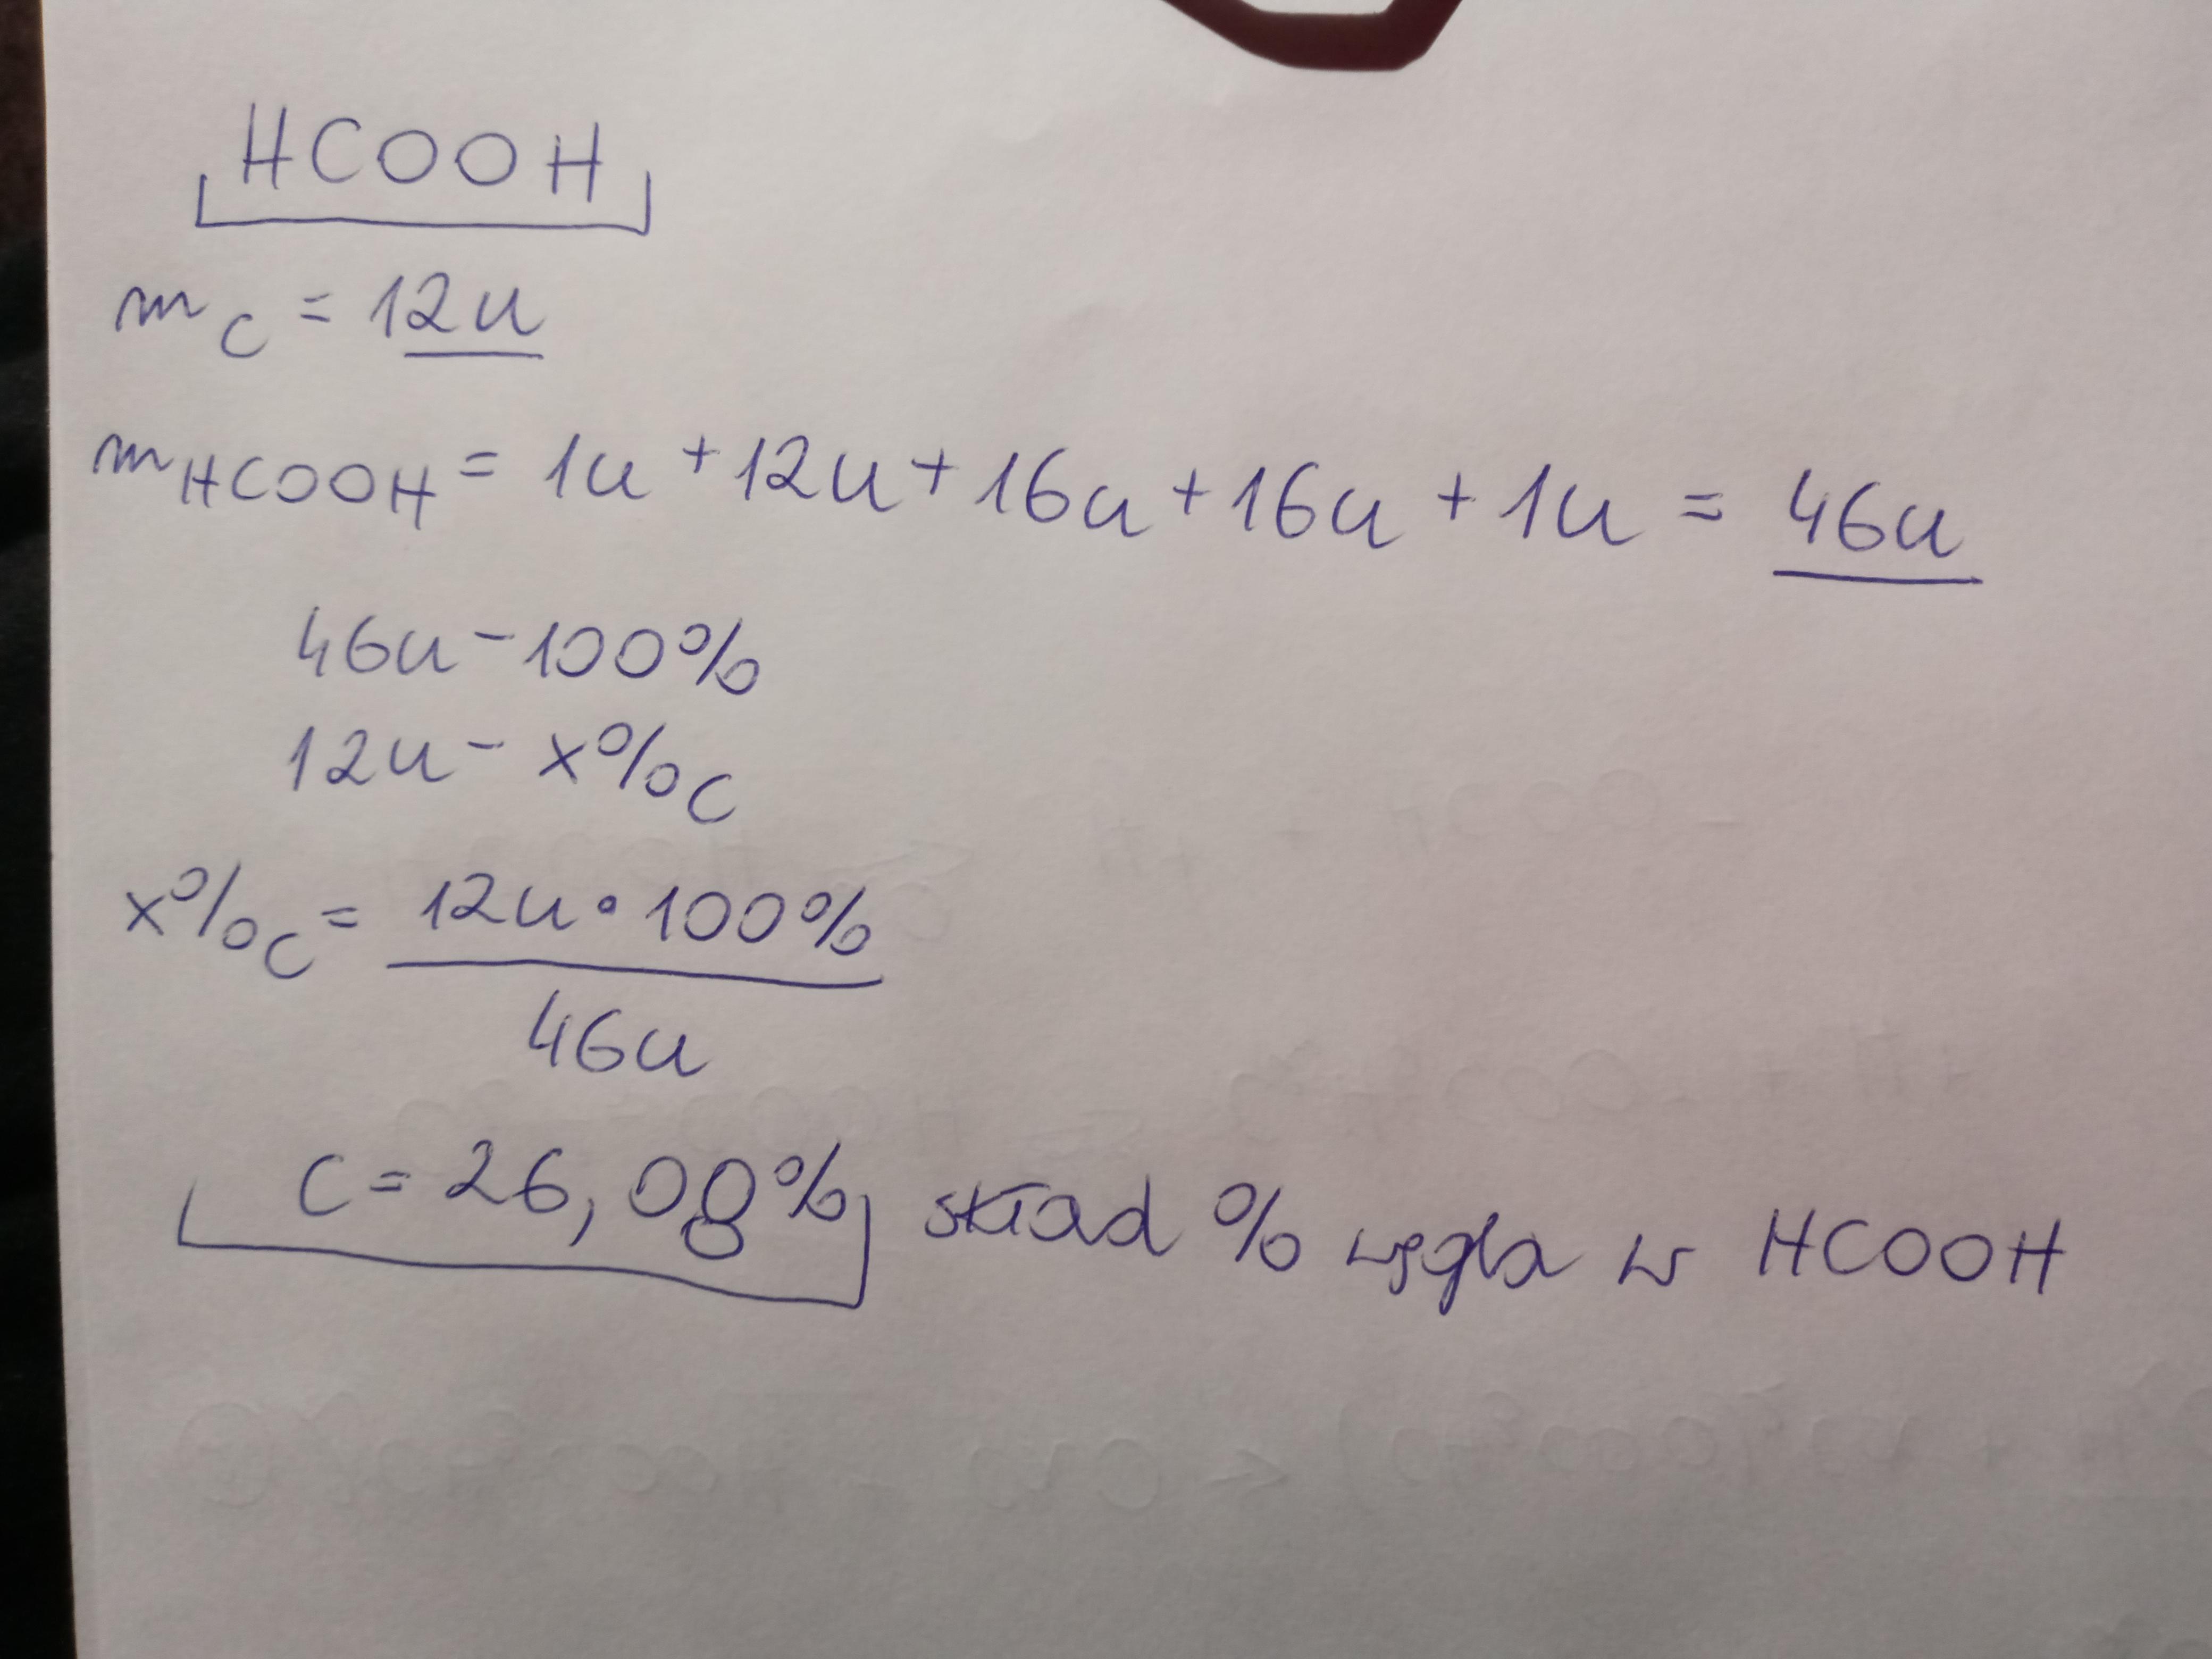 HCOOH
mC = 12u
mHCOOH = 1u + 12u + 16u + 16u + 1u = 46u
46u - 100%
12u - x%C
x%C = 12u • 100%
46u
C = 26,08% skład % węgla w HCOOH